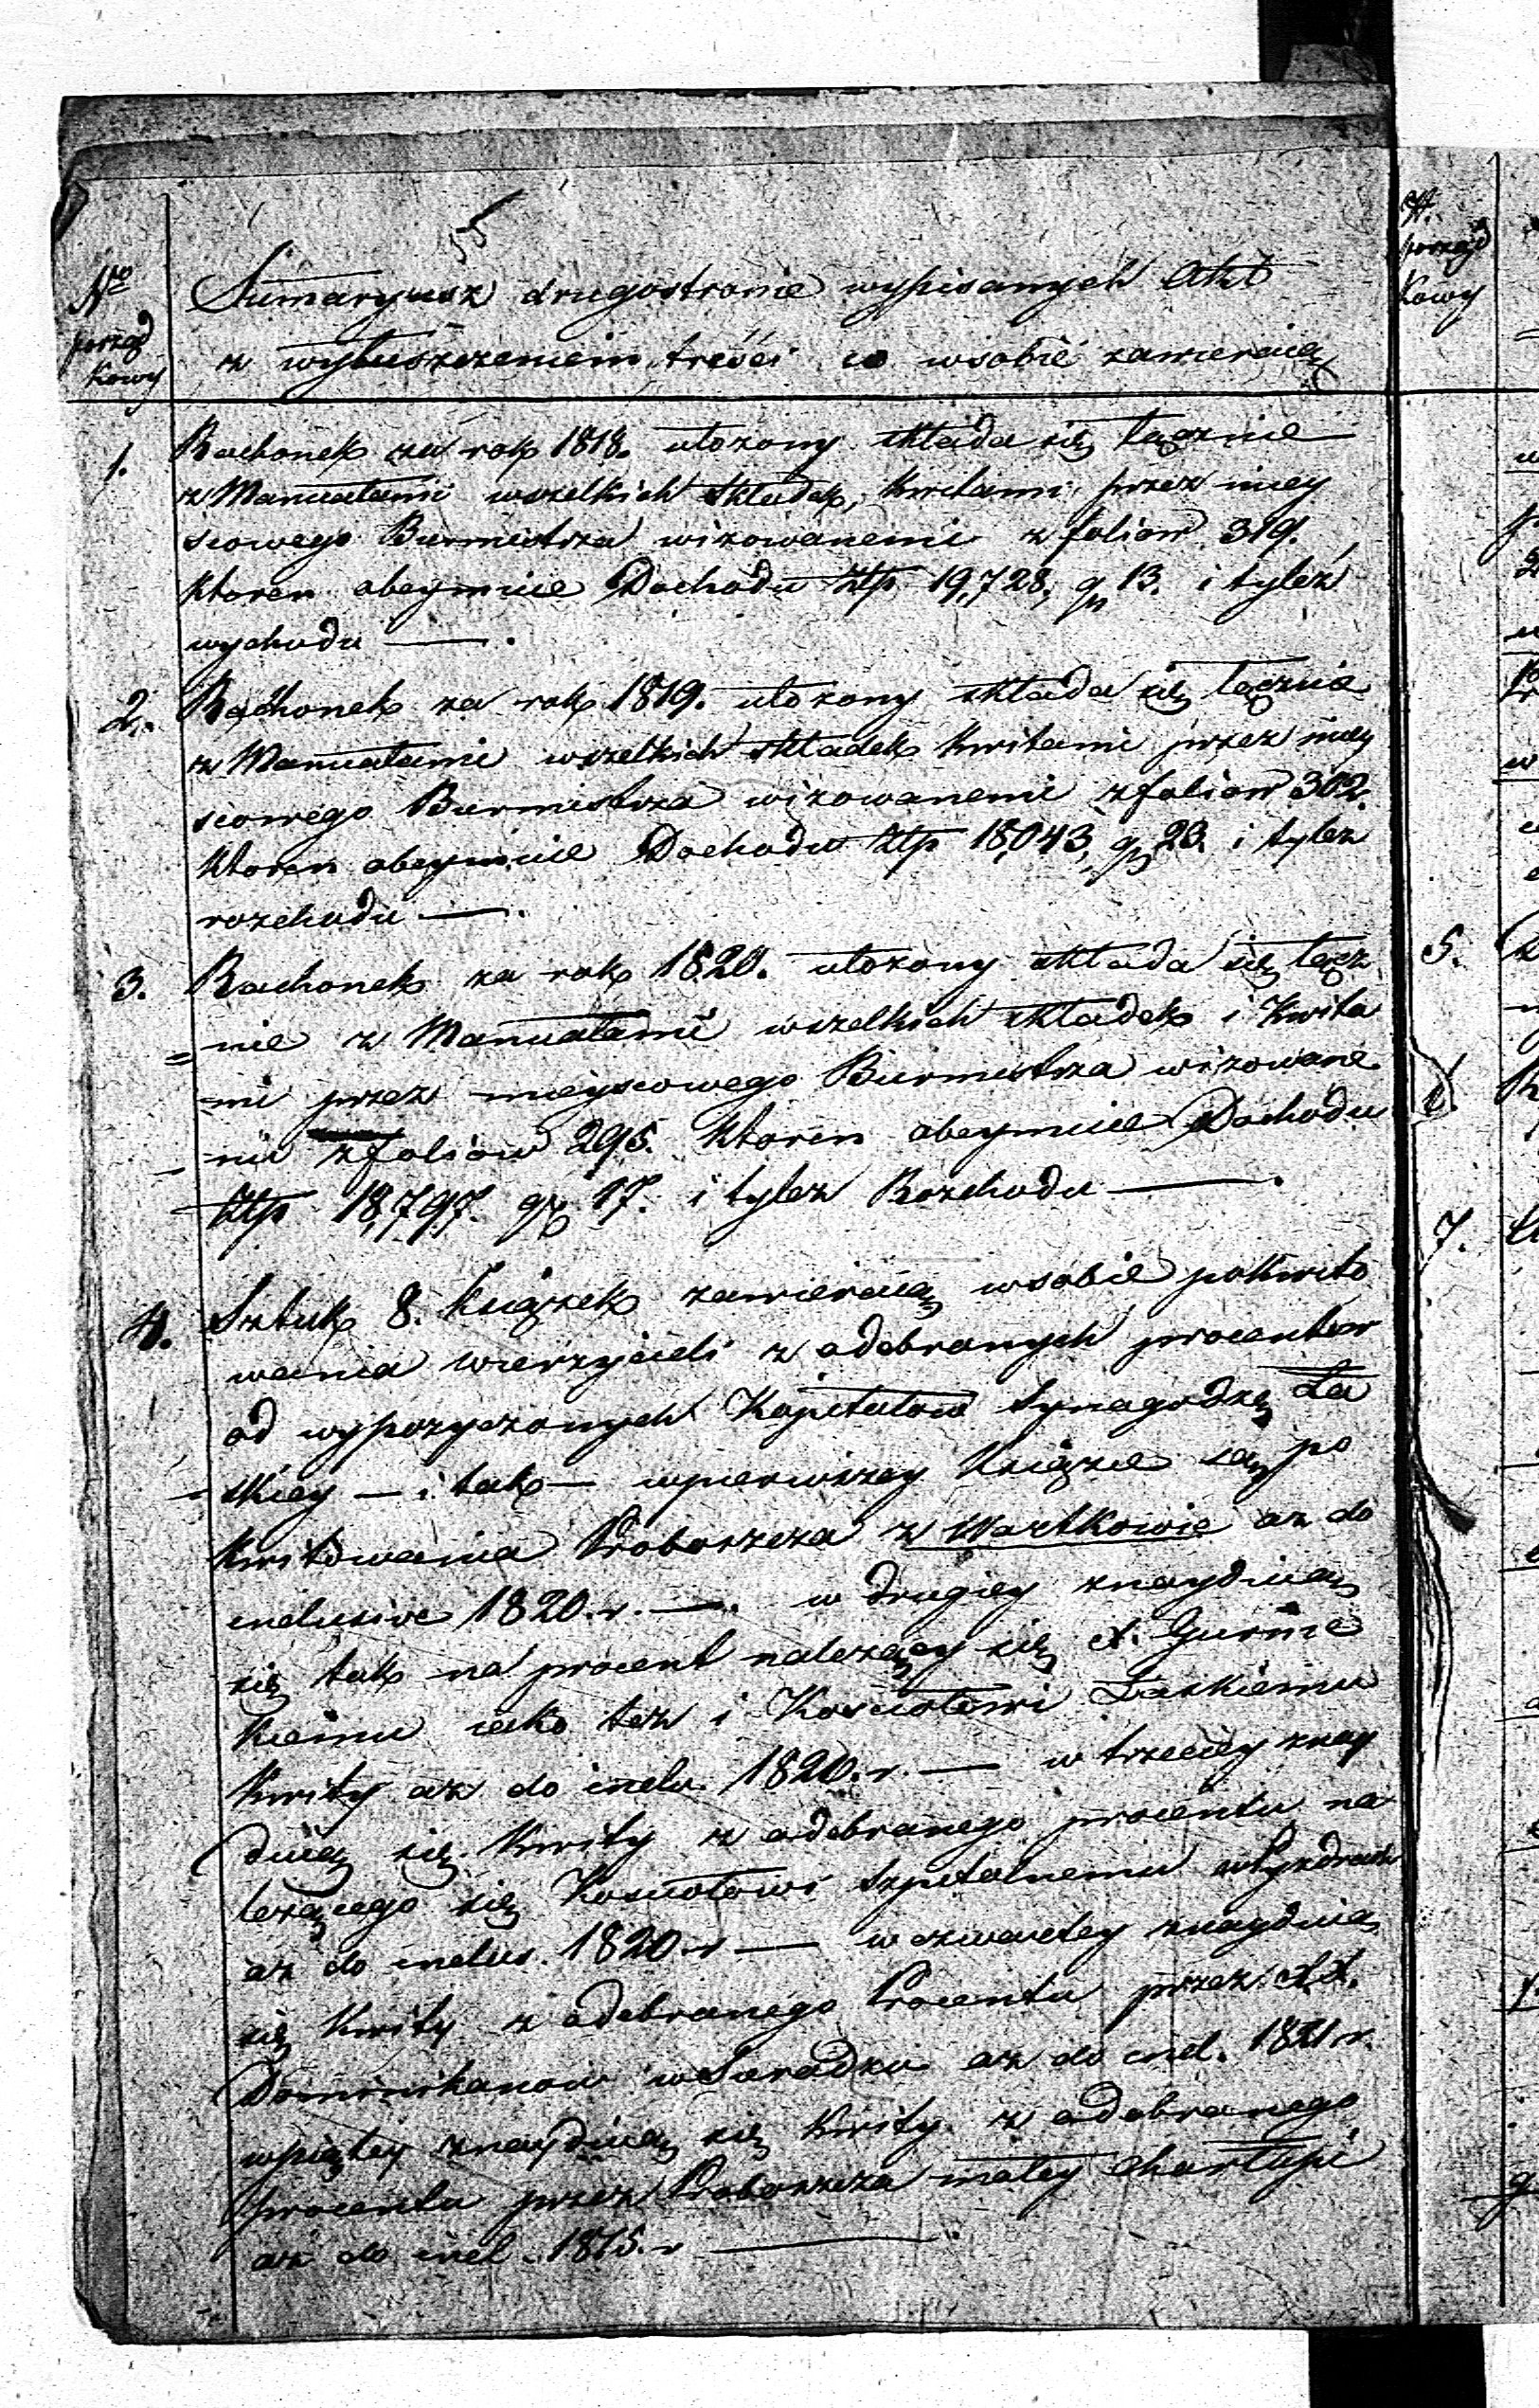 55
Nro
porząd
kowy
Sumaryusz drugostronie wypisanych Akt
z wyłuszczeniem treści co wsobie zawieraią
1.
Rachonek za rok 1818. ułozony składa się łącznie
z Manuałami wszelkich składek, kwitami przez miey
scowego Burmistrza wizowanemi z foliow 319.
ktoren obeymuie Dochodu Złp 19,728, gr 13. i tyleż
wychodu —.
2.
Rachonek za rok 1819. ułozony składa się łącznie
z Manuałami wszelkich składek kwitami przez miey
scowego Burmistrza wizowanemi z foliow 302.
ktoren obeymuie Dochodu Złp 18,043, gr 23. i tylez
rozchodu —.
3.
Rachonek za rok 1820. ułozony składa się łącz
=nie z Manuałami wszelkich składek i kwita
=mi przez mieyscowego Burmistrza wizowane
=mi z foliow 295. ktoren obeymuie Dochodu
Złp 18,797. gr 17. i tylez Rozchodu —.
4.
Sztuk 8. książek zawieraią wsobie pokwito
wania wierzycieli z odebranych procentow
od wypozyczonych Kapitałow Synagodze Ła
skiey — i tak — wpierwszey książce są po
kwitowania Proboszcza z Wartkowic az do
inclusive 1820. r. —. w drugiey znayduią
się tak na procent nalezący się X. Gurnic
kiemu iako tez i Kosciołowi Łaskiemu
kwity az do inclu. 1820. r. — w trzeciey znay
duią się kwity z odebranego procentu na
lezącego się Kosciołowi szpitalnemu
az do inclus. 1820 r — w czwartey znayduią
się kwity z odebranego Procentu przez XX.
Dominikanow w Sieradzu az do incl. 1821 r.
wpiątey znayduią się kwity z odebranego
procentu przez Proboszcza małey Charłupi
az do incl. 1815. r —.
porząd
kowy
5.
7.